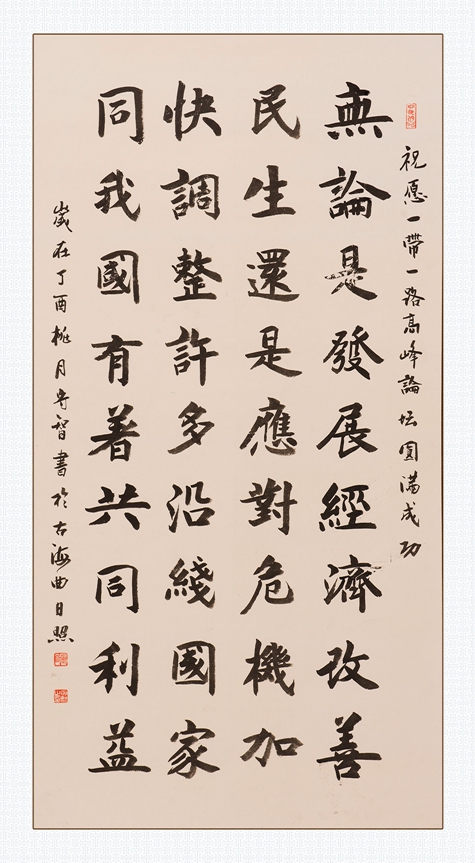 祝愿一帶一路高峰論坛圓满成功
無論是發展經濟改善
民生還是應對危機加
快調整許多沿綫國家
同我國有着共同利益
歲在丁酉桃月守智書於古海曲日照